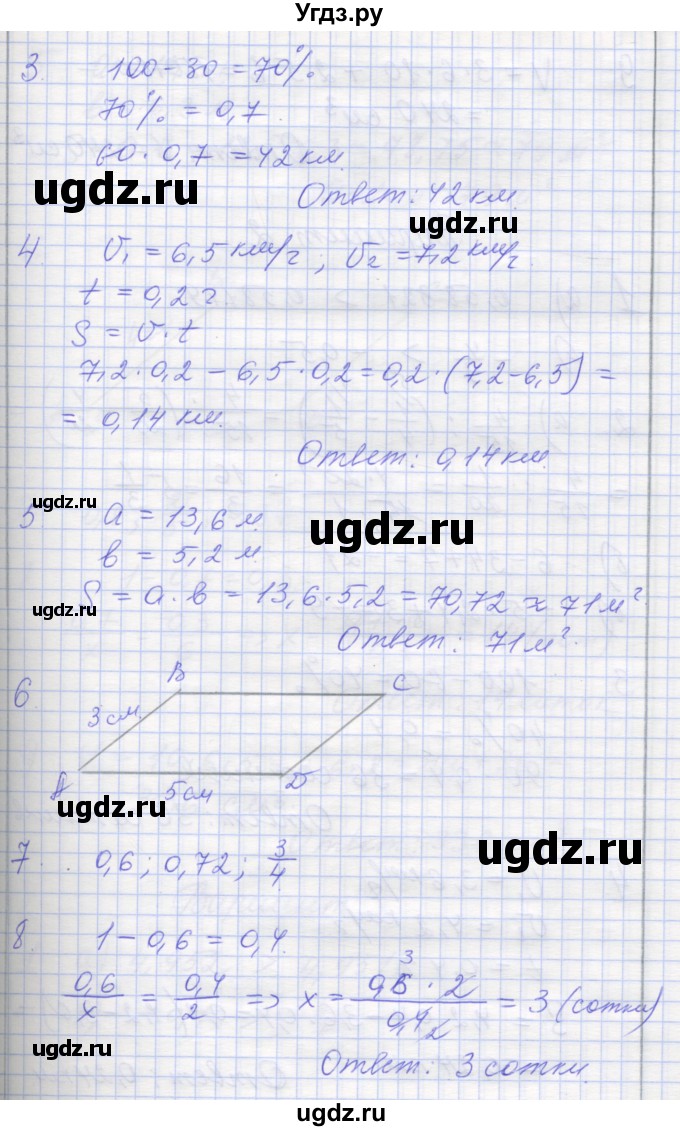 Угдз.ру
3. 100 - 30 = 70%
70% = 0,7
60 · 0,7 = 42 км.
Ответ: 42 км.
ugdz.ru
ugdz.ru
4 V₁ = 6,5 км/г ; V₂ = 7,2 км/г.
t = 0,2 г
S = V · t
7,2 · 0,2 - 6,5 · 0,2 = 0,2 · (7,2 - 6,5) =
= 0,14 км.
Ответ: 0,14 км.
ugdz.ru
5 a = 13,6 м.
ugdz.ru
в = 5,2 м.
S = a · в = 13,6 · 5,2 = 70,72 ≈ 71 м².
ugdz.ru
Ответ: 71 м².
6. B C
3 см.
A D
5 см
ugdz.ru
7. 0,6 ; 0,72 ; 3/4
ugdz.ru
8. 1 - 0,6 = 0,4.
0,6/x = 0,4/2 => x = 0,6 · 2/0,4 = 3 (сотки)
3
2
ugdz.ru
Ответ: 3 сотки.
ugdz.ru
ugdz.ru